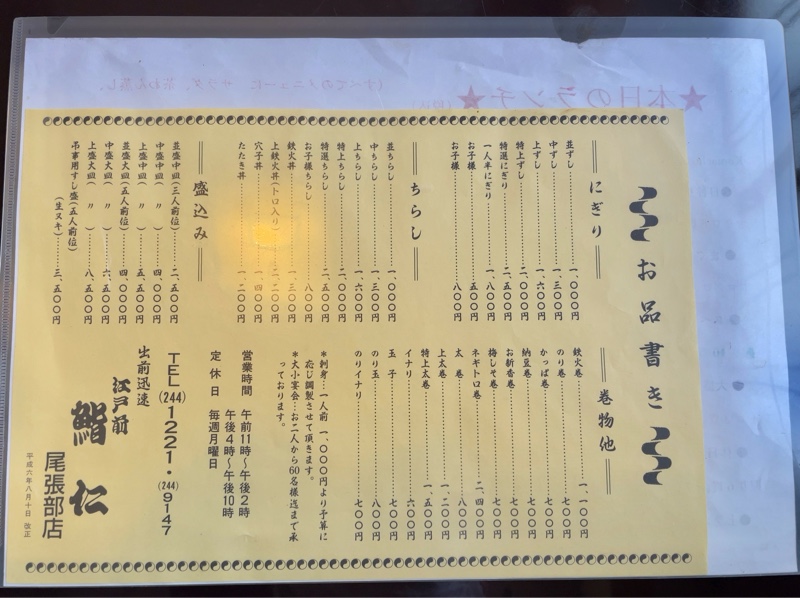 ★本日のランチ★(税込)
(すべてのメニューに サラダ、茶わん蒸し、
お品書き
にぎり
並ずし……一、〇〇〇円
中ずし……一、三〇〇円
上ずし……一、六〇〇円
特上ずし……二、〇〇〇円
特選にぎり……二、五〇〇円
一人半にぎり……一、八〇〇円
お子様……五〇〇円
お子様……八〇〇円
ちらし
並ちらし……一、〇〇〇円
中ちらし……一、三〇〇円
上ちらし……一、六〇〇円
特上ちらし……二、〇〇〇円
特選ちらし……二、五〇〇円
お子様ちらし……八〇〇円
鉄火丼……一、三〇〇円
上鉄火丼(トロ入り)……二、二〇〇円
穴子丼……一、四〇〇円
たたき丼……一、二〇〇円
盛込み
並盛中皿(三人前位)……二、五〇〇円
中盛中皿(〃)……四、〇〇〇円
上盛中皿(〃)……五、五〇〇円
並盛大皿(五人前位)……四、〇〇〇円
中盛大皿(〃)……六、五〇〇円
上盛大皿(〃)……八、五〇〇円
吊事用すし盛(五人前位)
(生ヌキ)……三、五〇〇円
巻物他
鉄火巻……一、一〇〇円
のり巻……七〇〇円
かっぱ巻……七〇〇円
納豆巻……七〇〇円
お新香巻……七〇〇円
梅しそ巻……七〇〇円
ネギトロ巻……二、四〇〇円
太巻……八〇〇円
上太巻……一、二〇〇円
特上太巻……一、五〇〇円
イナリ……六〇〇円
玉子……七〇〇円
のり玉……八〇〇円
のりイナリ……七〇〇円
*刺身…一人前 一、〇〇〇円より予算に
応じ調製させて頂きます。
*大小宴会…お二人から60名様迄まで承
っております。
営業時間 午前11時〜午後2時
午後4時〜午後10時
定休日 毎週月曜日
TEL(244)1221・(244)9147
出前迅速
江戸前
鮨仁
尾張部店
平成六年八月十日 改正